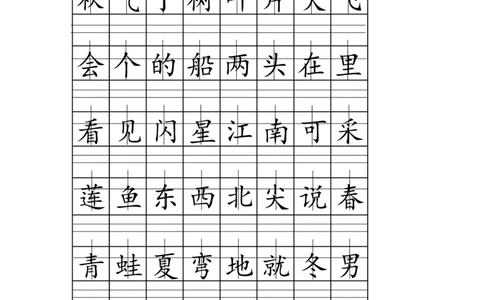 秋气了树叶片大飞
会个的船两头在里
看见闪星江南可采
莲鱼东西北尖说春
青蛙夏弯地就冬男